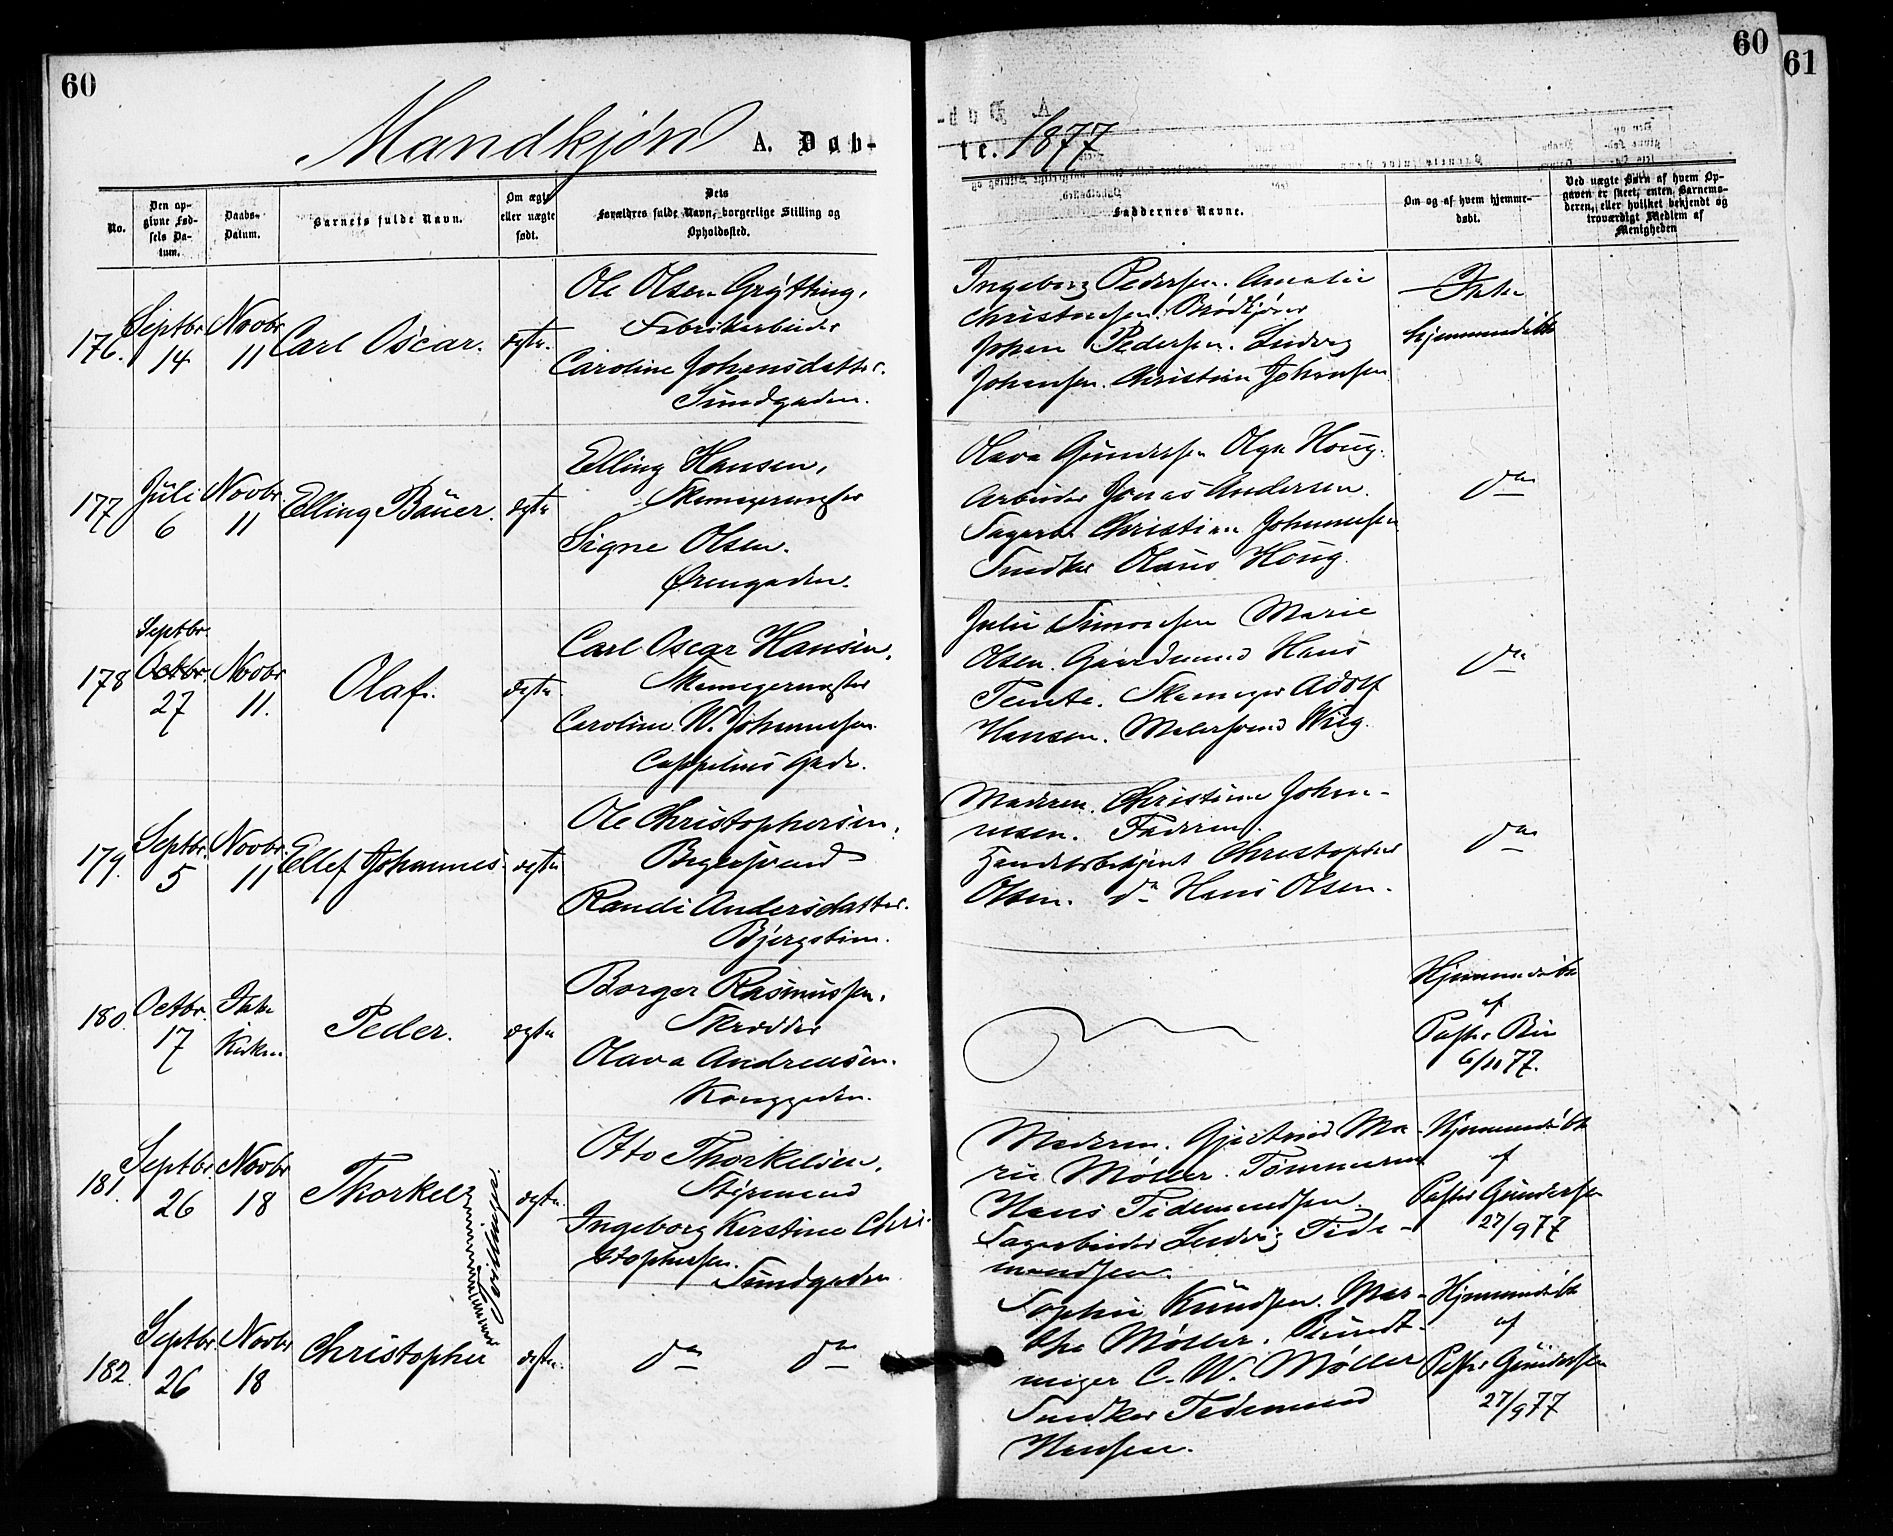 60
60
61
Mandkjøn A. Døb-
te. 1877
No.
Den op-
givne Fød-
sels Da-
tum.
Daabs-
Datum.
Barnets fulde Navn.
Om ægte
eller uægte
født.
Dets
Forældres fulde Navn, borgerlige Stilling og
Opholdssted.
Faddernes Navne.
Om og af hvem hjemme-
døbt.
Ved uægte Børn af hvem Op-
gaven er skeet, enten Barnemo-
deren, eller hvilket bekjendt og
troværdigt Medlem af
Menigheden
176.
Septbr
14
Novbr
11
Carl Oscar.
ægte.
Ole Olsen Grýtting,
Fabrikarbeider
Caroline Johansdatter.
Sundgaden.
Ingeborg Pedersen. Amalie
Christensen. Brødkjører
Johan Pedersen. Ludvig
Johansen. Christian Johansen
Ikke
hjemmedøbt
177
Juli
6
Novbr.
11
Elling Bauer.
ægte
Elling Hansen,
Skomagermester
Signe Olsen.
Ørengaden.
Olava Gundersen Olga Houg.
Arbeider Jonas Andersen.
Sagarb. Christian Johannesen
Snedker Olaus Houg.
do
178
Septbr.
Octbr.
27
Novbr
11.
Olaf.
ægte.
Carl Oscar Hansen,
Skomagermester
Caroline W. Johannesen
Cappelens Gade.
Julie Simonsen Marie
Olsen. Gaardmand Hans
Temte. Skomager Adolf
Hansen. Malersvend Wiig.
do
179.
Septbr.
5
Novbr.
11
Ellef Johannes.
ægte
Ole Christophersen,
Bagersvend
Randi Andersdatter.
Bjergstien.
Moderen. Christine Johan-
nesen. Faderen.
Handelsbetjent Christopher
Olsen. do Hans Olsen.
do
180.
Octbr.
17
Ikke
Kirken
Peder.
ægte
Borger Rasmussen,
Skrædder
Olava Andreasen.
Konggaden.
Hjemmedøbt
af
Pastor
6/11 77.
181.
Septbr.
26
Novbr
18
Thorkel
Tvillinger.
ægte.
Otto Thorkelsen,
Styrmand
Ingeborg Kerstine Chri-
stophersen.
Sundgaden
Moderen. Gjertrud Ma-
rie Møller. Tømmermd
Hans Tidemandsen.
Sagarbeider Ludvig Tide-
mandsen.
Hjemmedøbt
af
Pastor Gundersen
27/9 77
182.
Septbr.
26
Novbr
18
Christopher
Tvillinger
ægte.
do do
Sophie Knudsen. Mar-
tha Møller. Bundt-
mager C. W. Møller
Snedker Tidemand
Hansen.
Hjemmedøbt
af
Pastor Gundersen
27/9 77